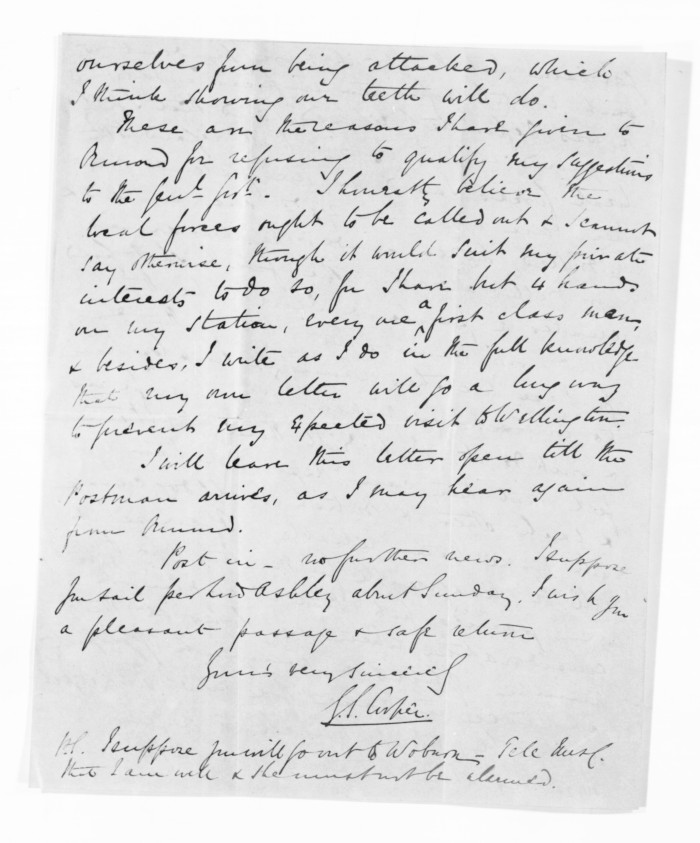 ourselves from being attacked, which
I think showing our teeth will do.
These are the reasons I have given to
Ormond for refusing to qualify my suggestions
to the Genl. Govt. I honestly believe the
local forces ought to be called out & I cannot
say otherwise, though it would suit my private
interests to do so, for I have but 4 hands
on my station, every one a first class man,
& besides, I write as I do in the full knowledge
that my own letter will go a long way
to prevent my expected visit to Wellington.
I will leave this letter open till the
Postman arrives, as I may hear again
from Ormond.
Post in - no further news. I suppose
you sail per Lord Ashley about Sunday. I wish you
a pleasant passage & safe return
Yours very sincerely
G.S. Cooper.
P.S. I suppose you will go out to Woburn - Tell Mrs C.
that I am well & she must not be alarmed.